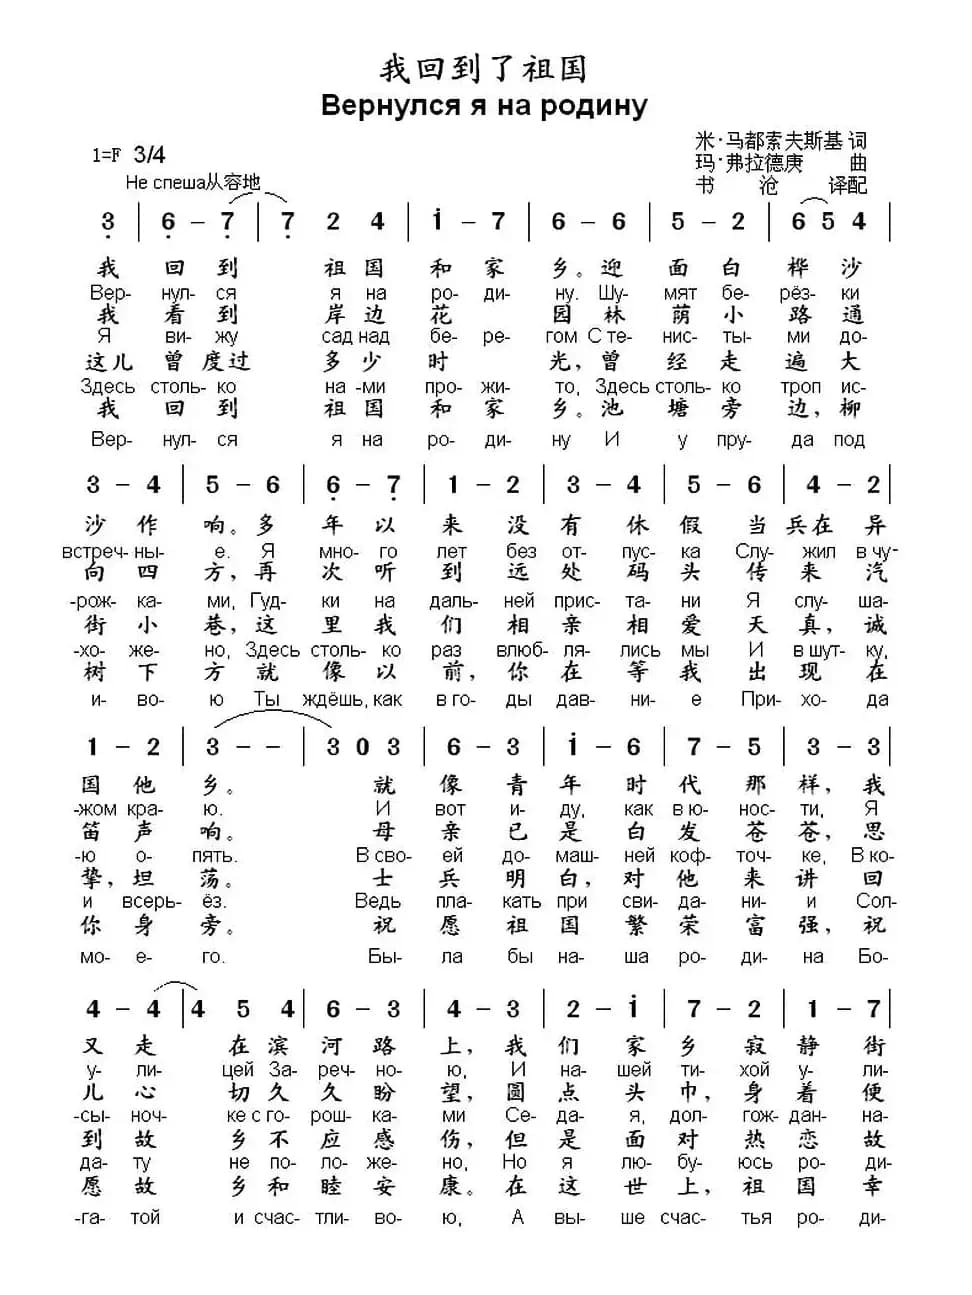 我回到了祖国
Вернулся я на родину
米·马都索夫斯基 词
1=F 3/4
玛·弗拉德庚 曲
Не спеша从容地
书 沧 译配
3 | 6 – 7 | 7 2 4 | i – 7 | 6 – 6 | 5 – 2 | 6 5 4 |
我 回 到 祖 国 和 家 乡。迎 面 白 桦 沙
Вер- нул- ся я на ро- ди- ну. Шу- мят бе- рёз- ки
我 看 到 岸 边 花 园 林 荫 小 路 通
Я ви- жу сад над бе- ре- гом С те- нис- ты- ми до-
这儿 曾 度过 多 少 时 光,曾 经 走 遍 大
Здесь столь- ко на -ми про- жи- то, Здесь столь- ко троп ис-
我 回 到 祖 国 和 家 乡。池 塘 旁 边,柳
Вер- нул- ся я на ро- ди- ну И у пру- да под
3 – 4 | 5 – 6 | 6 – 7 | 1 – 2 | 3 – 4 | 5 – 6 | 4 – 2 |
沙 作 响。多 年 以 来 没 有 休 假 当 兵在 异
встреч- ны- е. Я мно- го лет без от- пус- ка Слу- жил в чу-
向 四 方,再 次 听 到 远 处 码 头 传 来 汽
-рож- ка- ми, Гуд- ки на даль- ней прис- та- ни Я слу- ша-
街 小 巷,这 里 我 们 相 亲 相 爱 天 真,诚
-хо- же- но, Здесь столь- ко раз влюб- ля- лись мы И в шут- ку,
树 下 方 就 像 以 前,你 在 等 我 出 现 在
и- во- ю Ты ждёшь, как в го- ды дав- ни- е При- хо- да
1 – 2 | 3 – – | 3 0 3 | 6 – 3 | i – 6 | 7 – 5 | 3 – 3 |
国 他 乡。 就 像 青 年 时 代 那 样,我
-жом кра- ю. И вот и- ду, как в ю- нос- ти, Я
笛 声 响。 母 亲 已 是 白 发 苍 苍,思
-ю о- пять. В сво- ей до- маш- ней коф- точ- ке, В ко-
挚,坦 荡。 士 兵 明 白,对 他 来 讲 回
и всерь- ёз. Ведь пла- кать при сви- да- ни- и Сол-
你 身 旁。 祝 愿 祖 国 繁 荣 富 强,祝
мо- е- го. Бы- ла бы на- ша ро- ди- на Бо-
4 – 4 | 4 5 4 | 6 – 3 | 4 – 3 | 2 – i | 7 – 2 | 1 – 7 |
又 走 在 滨 河 路 上,我 们 家 乡 寂 静 街
у- ли- цей За- реч- но- ю, И на- шей ти- хой у- ли-
儿 心 切 久 久 盼 望,圆 点 头 巾,身 着 便
-сы- ноч- ке с го- рош- ка- ми Се- да- я, дол- гож- дан- на-
到 故 乡 不 应 感 伤,但 是 面 对 热 恋 故
да- ту не по- ло- же- но, Но я лю- бу- юсь ро- ди-
愿 故 乡 和 睦 安 康。在 这 世 上,祖 国 幸
-га- той и счас- тли- во- ю, А вы- ше счас- тья ро- ди-